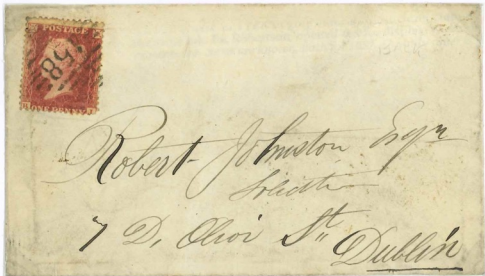 POSTAGE
Robert Johnston Esqr
Solicitor
7 D. Olier St
Dublin